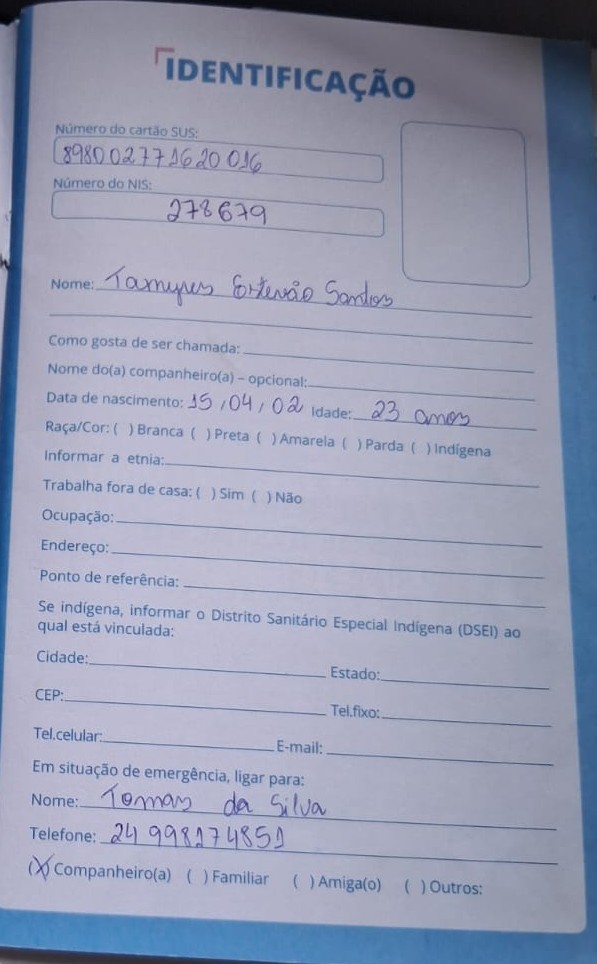 IDENTIFICAÇÃO
Número do cartão SUS:
898002771620016
Número do NIS:
278679
Nome: Tamyres Estevão Santos
Como gosta de ser chamada:
Nome do(a) companheiro(a) – opcional:
Data de nascimento: 15/04/02 Idade: 23 anos
Raça/Cor: ( ) Branca ( ) Preta ( ) Amarela ( ) Parda ( ) Indígena
Informar a etnia:
Trabalha fora de casa: ( ) Sim ( ) Não
Ocupação:
Endereço:
Ponto de referência:
Se indígena, informar o Distrito Sanitário Especial Indígena (DSEI) ao
qual está vinculada:
Cidade: Estado:
CEP: Tel.fixo:
Tel.celular: E-mail:
Em situação de emergência, ligar para:
Nome: Tomas da Silva
Telefone: 24 998174851
(X) Companheiro(a) ( ) Familiar ( ) Amiga(o) ( ) Outros: